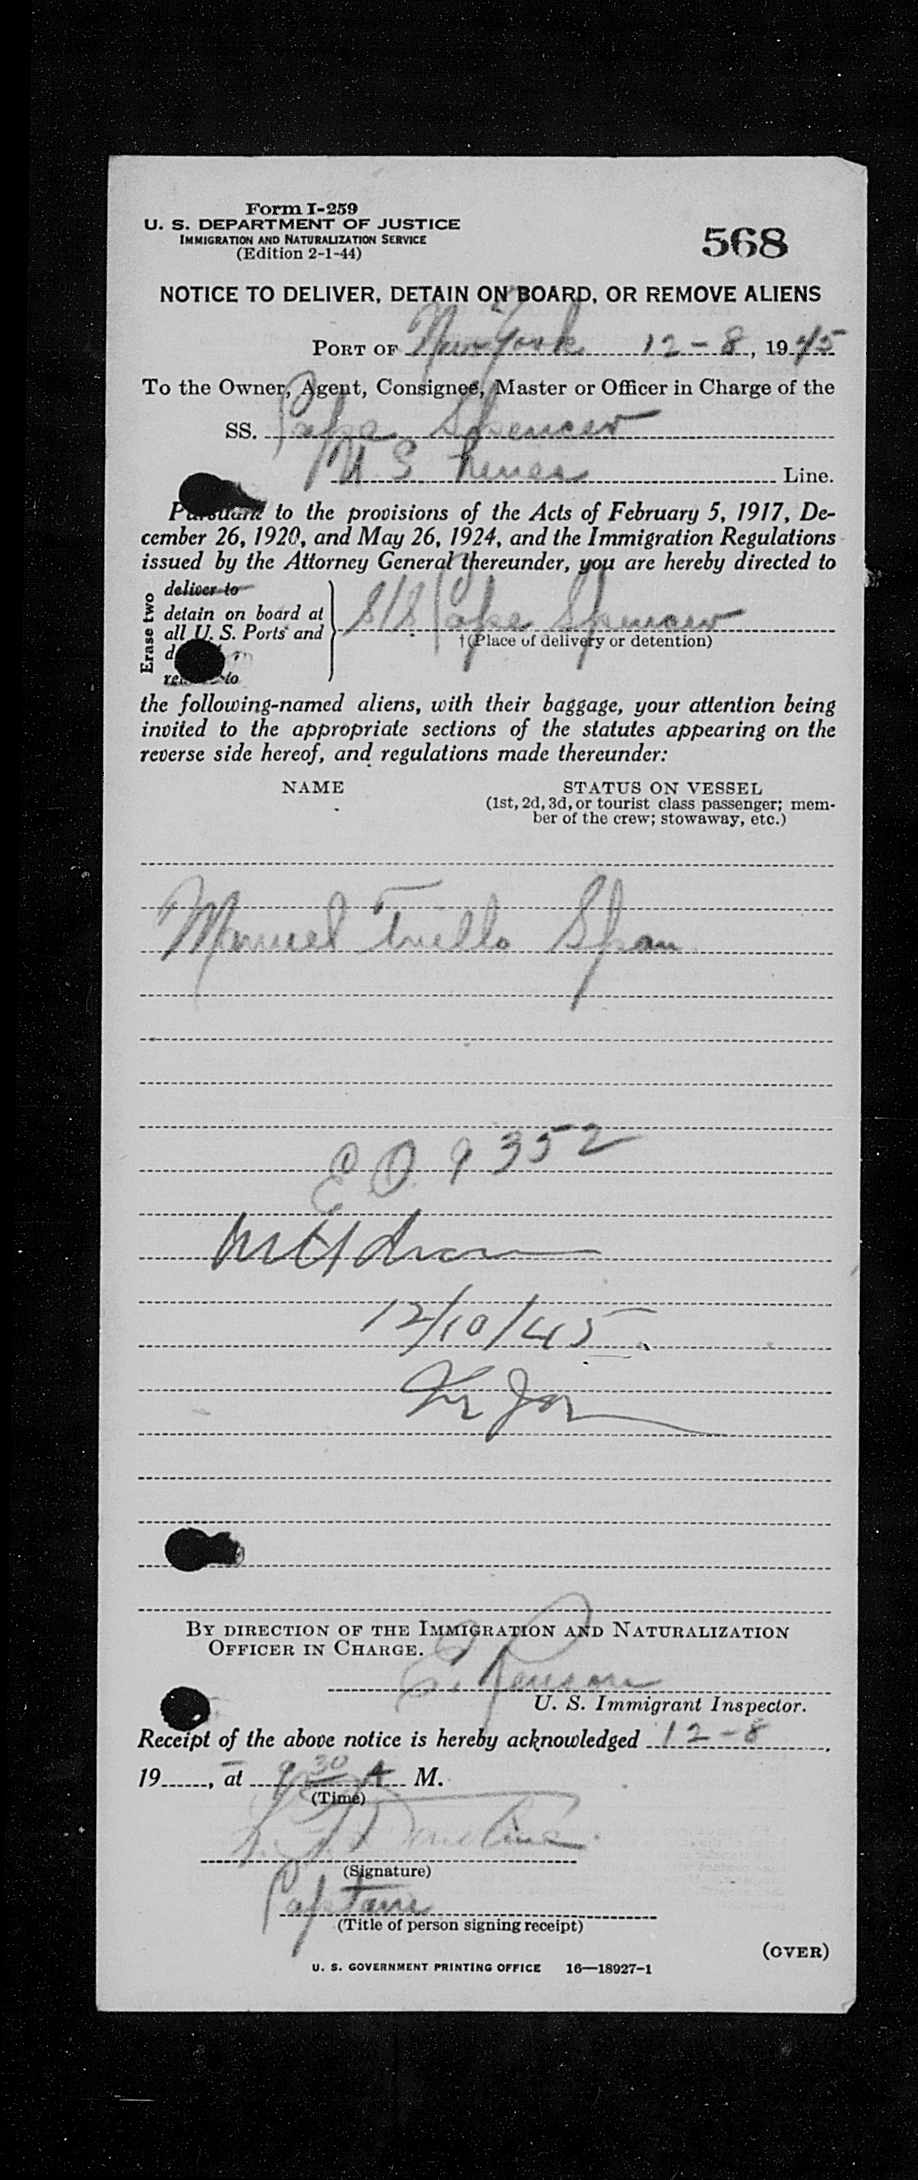 Form I-259
U. S. DEPARTMENT OF JUSTICE
IMMIGRATION AND NATURALIZATION SERVICE
(Edition 2-1-44)
568
NOTICE TO DELIVER, DETAIN ON BOARD, OR REMOVE ALIENS
PORT OF New York 12-8, 1945
To the Owner, Agent, Consignee, Master or Officer in Charge of the
SS. Cape Spencer
U S Lines Line.
Pursuant to the provisions of the Acts of February 5, 1917, De-
cember 26, 1920, and May 26, 1924, and the Immigration Regulations
issued by the Attorney General thereunder, you are hereby directed to
Erase two
deliver to
detain on board at
all U. S. Ports and
to
S/S Cape Spencer
†(Place of delivery or detention)
the following-named aliens, with their baggage, your attention being
invited to the appropriate sections of the statutes appearing on the
reverse side hereof, and regulations made thereunder:
NAME
STATUS ON VESSEL
(1st, 2d, 3d, or tourist class passenger; mem-
ber of the crew; stowaway, etc.)
Manuel Span
E O 9352
12/10/45
BY DIRECTION OF THE IMMIGRATION AND NATURALIZATION
OFFICER IN CHARGE.
E.
U. S. Immigrant Inspector.
Receipt of the above notice is hereby acknowledged 12-8,
19, at 9 30 A M.
(Time)
(Signature)
Captain
(Title of person signing receipt)
(OVER)
U. S. GOVERNMENT PRINTING OFFICE 16—18927-1